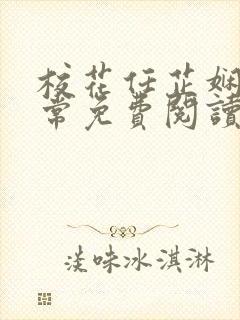 校花任芷娴
常免费阅读
淡味冰淇淋